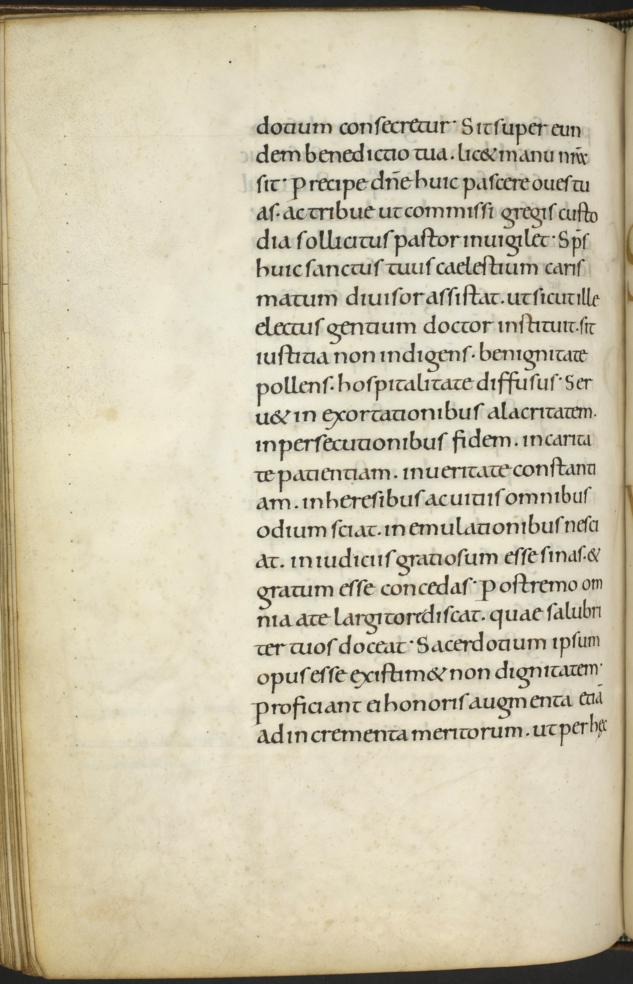 dotium consecretur· Sit super eun
dem benedictio tua. lic& manu nr̅a
sit· Precipe dn̅e huic pascere oues tu
as· ac tribue ut commissi gregis custo
dia sollicitus pastor inuigilet· Sp̅s
huic sanctus tuus caelestium caris
matum diuisor assistat. ut sicut ille
electus gentium doctor instituit. sit
iustitia non indigens· benignitate
pollens· hospitalitate diffusus· Ser
u& in exortationibus alacritatem.
in persecutionibus fidem. in carita
te patientiam. in ueritate constanti
am. in heresibus ac uitiis omnibus
odium sciat. in emulationibus nesci
at. in iudiciis gratiosum esse sinas. &
gratum esse concedas· Postremo om
nia a te largitore discat. quae salubri
ter tuos doceat· Sacerdotium ipsum
opus esse existim& non dignitatem·
proficiant ei honoris augmenta etiā
ad incrementa meritorum. ut per hęc